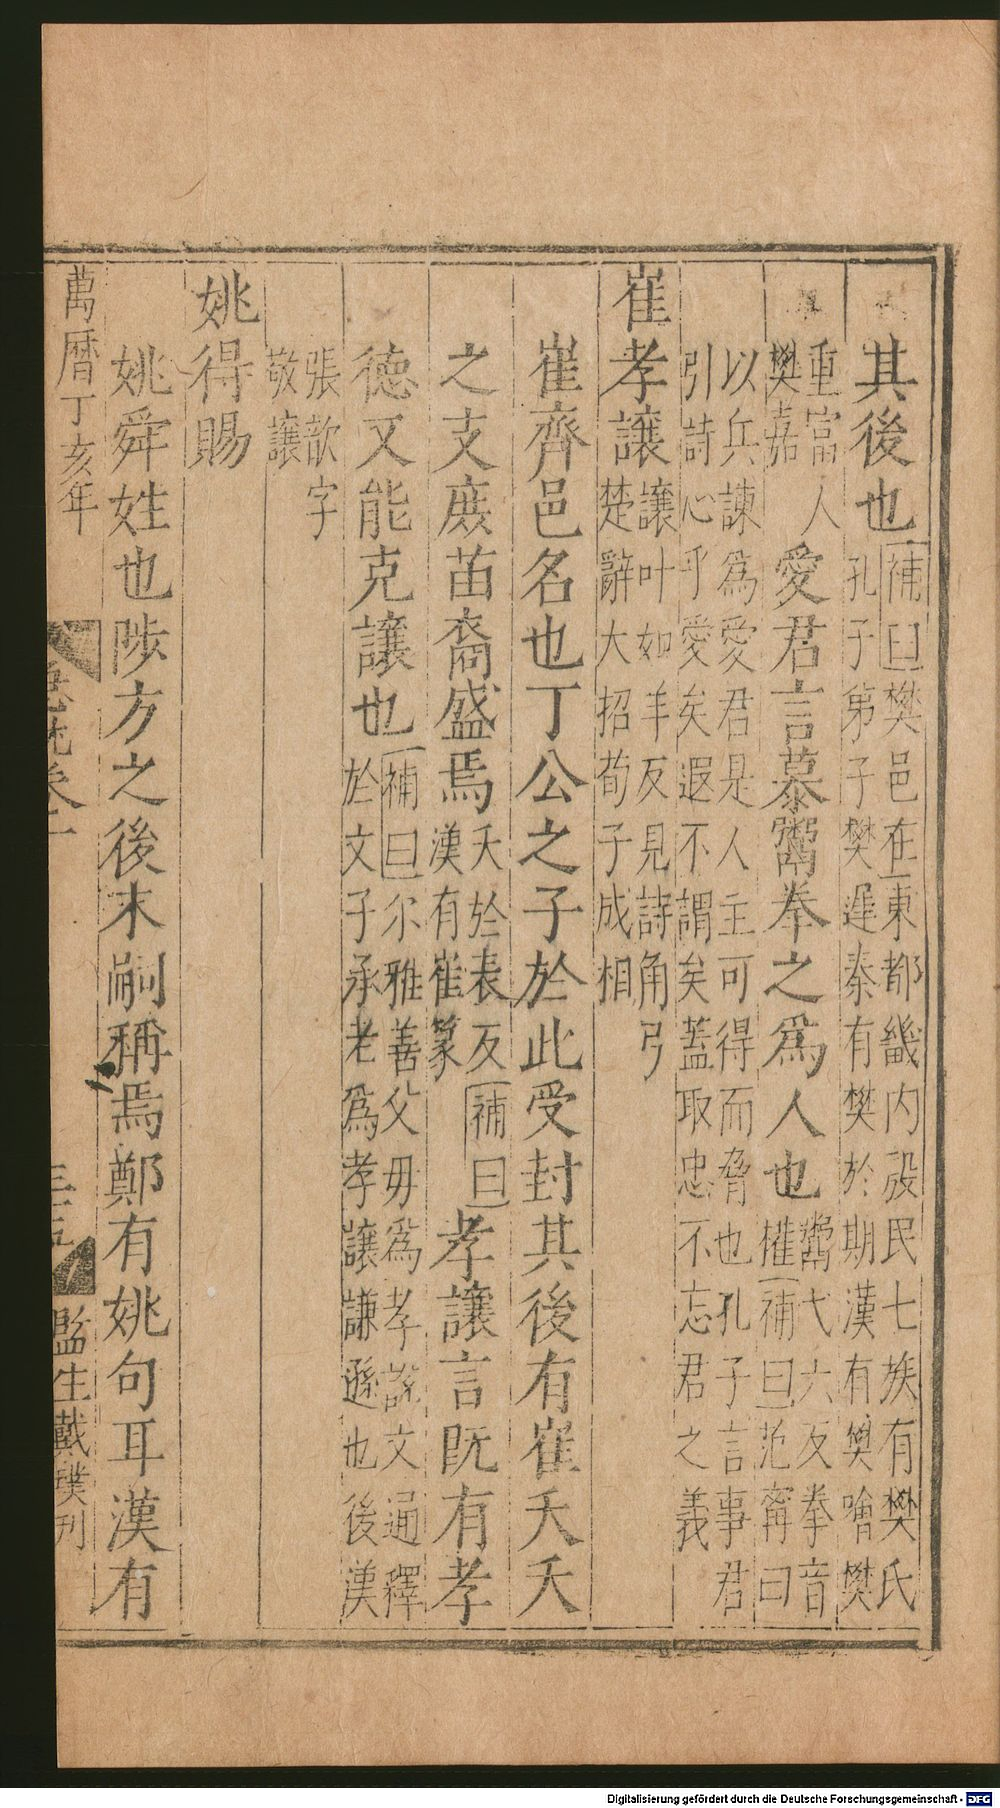 其後也補曰樊邑在東都畿内殷民七族有樊氏
孔子弟子樊遲秦有樊於期漢有樊噲樊
重富人
樊嘉
愛君言慕鬻拳之爲人也鬻弋六反拳音
權補曰范甯曰
以兵諫爲愛君是人主可得而脅也孔子言事君
引詩心乎愛矣遐不謂矣蓋取忠不忘君之義
崔孝讓讓叶如羊反見詩角弓
楚辭大招荀子成相
崔齊邑名也丁公之子於此受封其後有崔夭夭
之支庶苗裔盛焉夭於表反補曰
漢有崔篆
孝讓言既有孝
德又能克讓也補曰尔雅善父毋爲孝說文通釋
於文子承老爲孝讓謙遜也後漢
張歆字
敬讓
姚得賜
姚舜姓也陟方之後末嗣稱焉鄭有姚句耳漢有
萬曆丁亥年
三五
監生戴璞刋
Digitalisierung gefördert durch die Deutsche Forschungsgemeinschaft - DFG